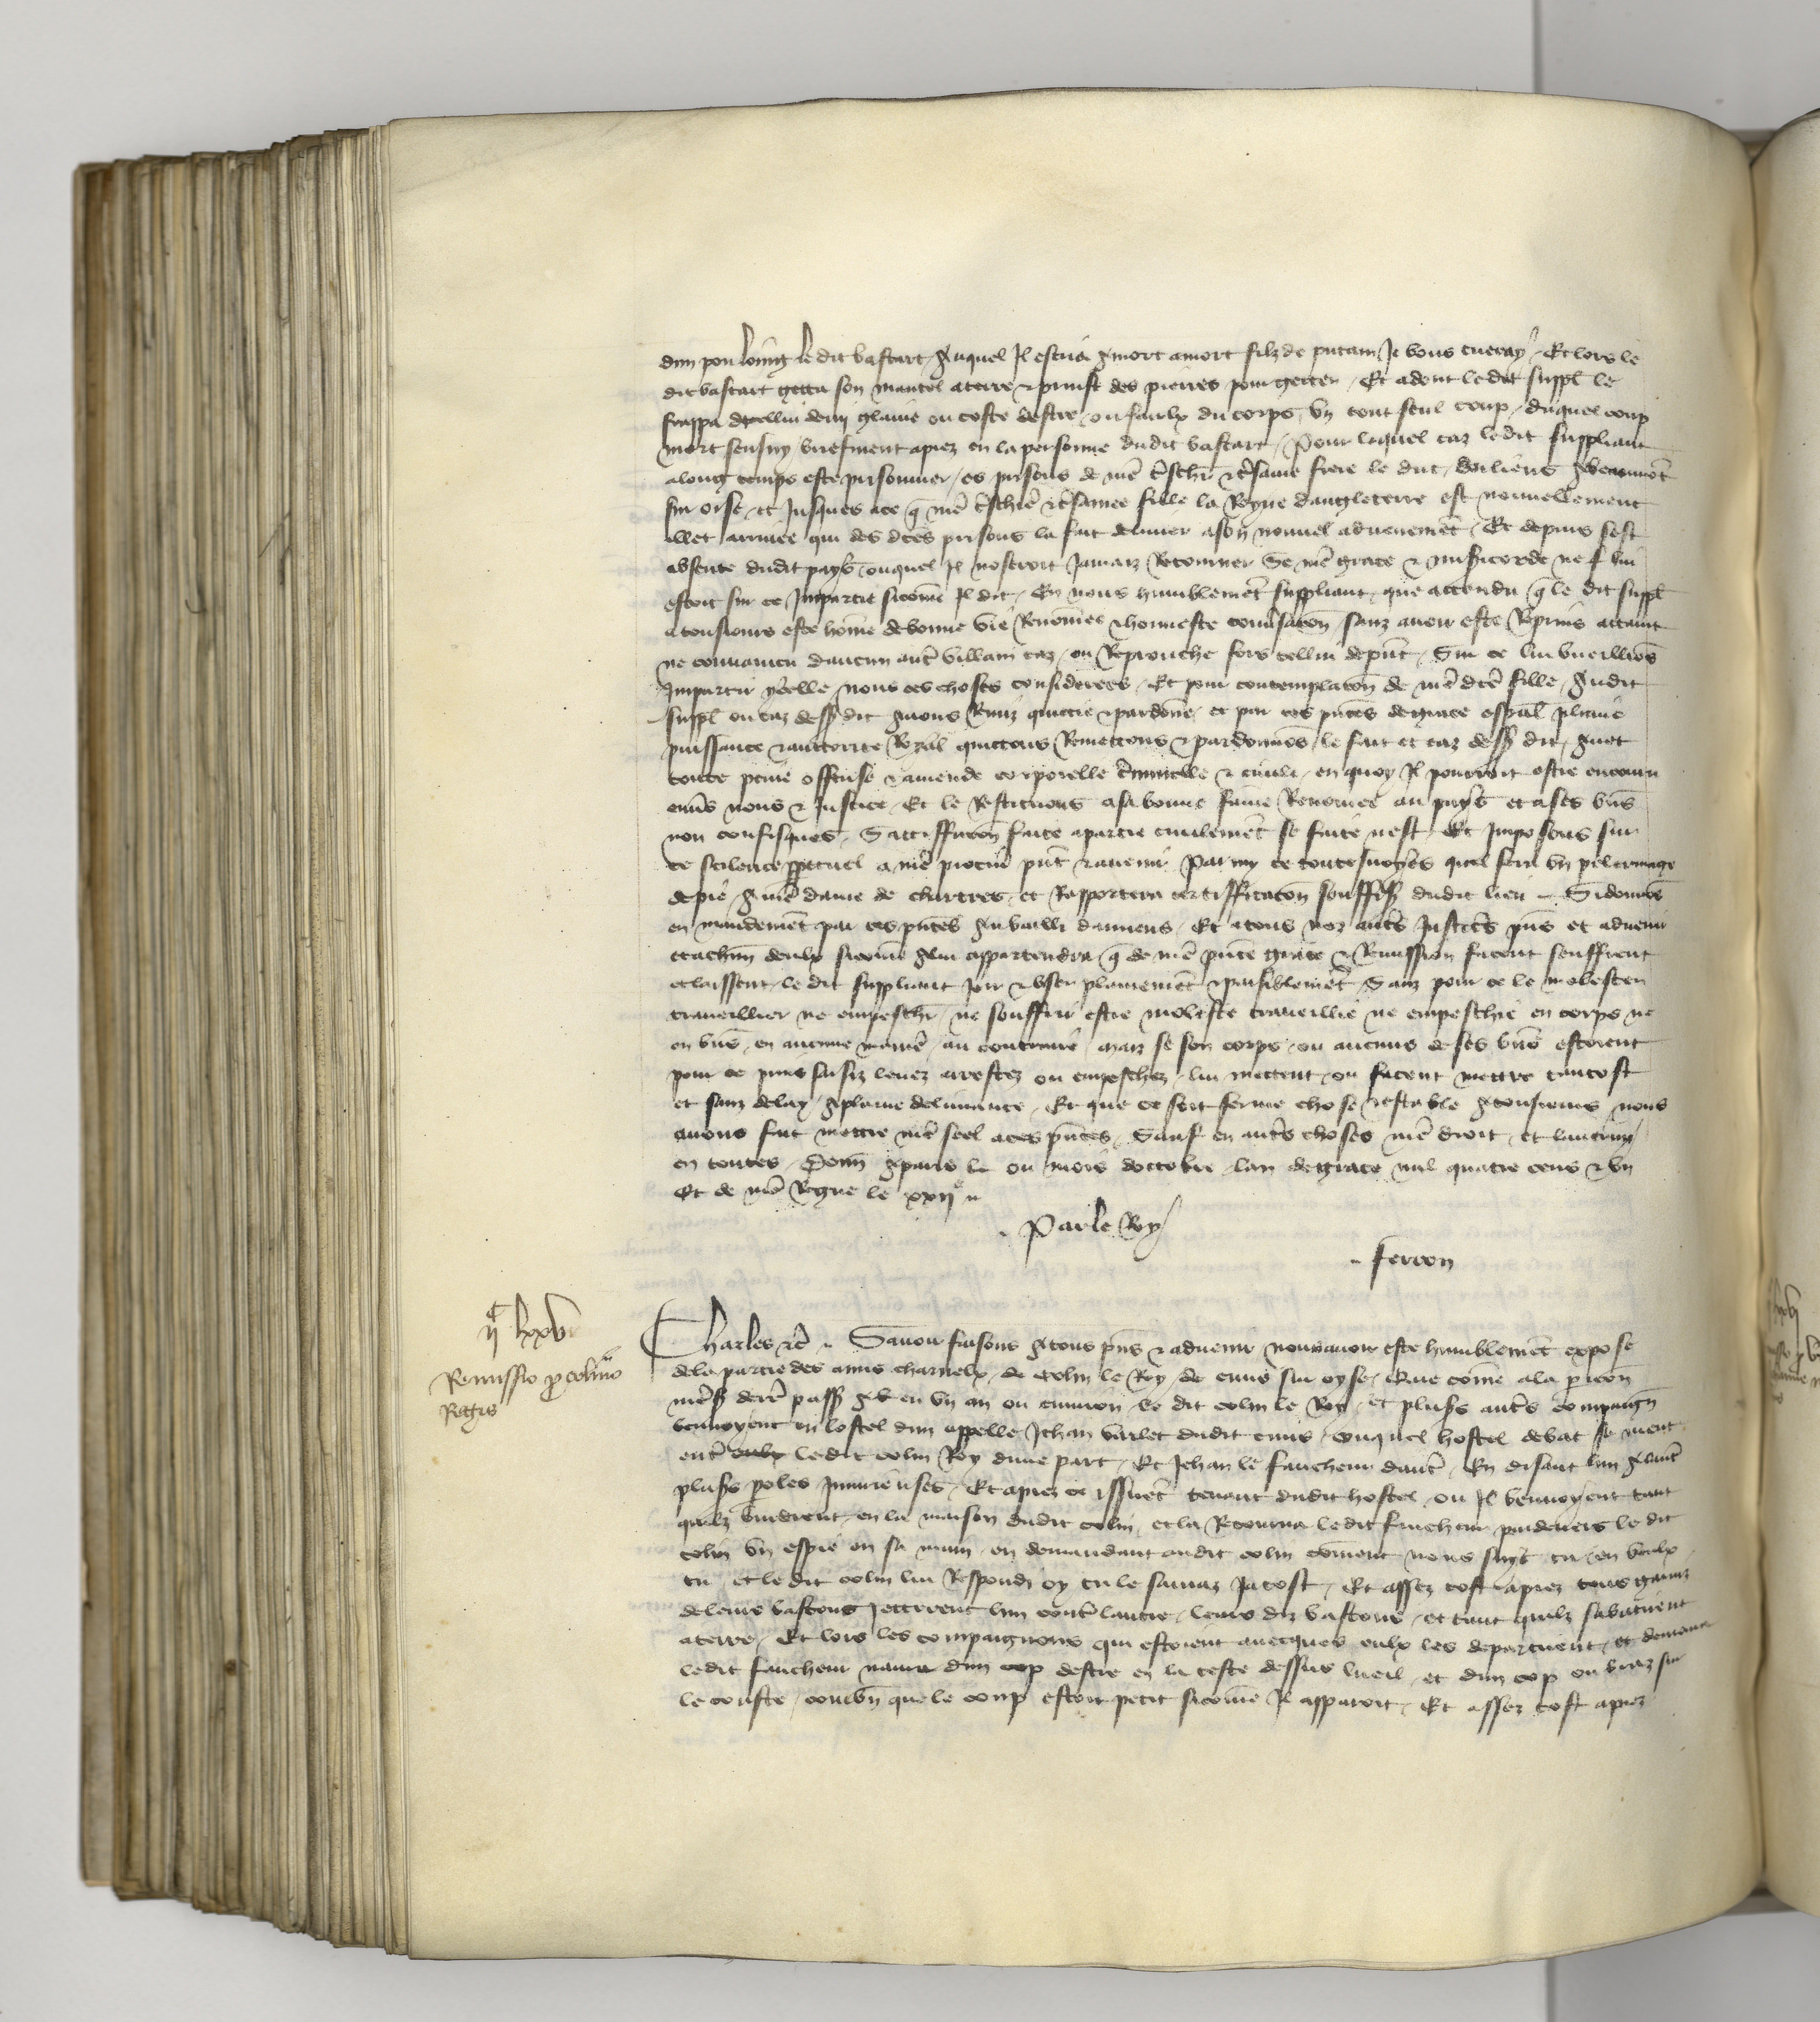 dun pou loing le dit bastart auquel Il escria a mort a mort filz de putain Je vous tueray Et lors le
dit bastart getta son mantel a terre & prinst des pierres pour getter Et adont ledit suppl le
frappa dicellui demi glaive ou coste destre ou faulx du corps un tout seul coup duquel coup
mort sensuy briefment apres en la personne dudit bastart Pour lequel caz ledit suppliant
a long temps este prisonnier es prisons de nre treschr & tresame frere le duc dorliens a beaumont
sur oise et Jusques a ce q nre treschiere & tresamee fille la Royne dangleterre est nouvellement
illec arrivee qui des dces prisons la fait delivrer a son nouvel advenement Et depuis sest
absente dudit pays ouquel Il noseroit Jamaiz Retourner Se nre grace & misericorde ne lui
estoit sur ce Impartie sicome Il dit En nous humblemet suppliant que attendu q le dit suppl
a tousiours este home de bonne vie Renomee & honneste conversacon sanz avoir este Reprins attaint
ne convaincu daucun autre villain caz ou Reprouche fors cellui depnt Sur ce lui vueillios
Impartir ycelle nous ces choses considerees Et pour contemplacon de nre dce fille audit
suppl ou caz dessus dit avons Remiz quittie & pardone et par ces pntes de grace espal plaine
puissance & auctorite Royal quittons Remettons & pardonnos le fait et caz dessus dit avec
toute peine offense & amende corporelle criminelle & civile en quoy Il pourroit estre encouru
envers nous & Justice Et le Restituons a sa bonne fame Renomee au pays et a ses bns
non confisques Satiffacon faite a partie civilemet se faite nest Et Imposons sur
ce scilence perpetuel a nre procur pnt & avenir Parmy ce toutesvoyes quil fera un pelerinage
de pie a nre dame de chartres et Rapportera certifficacon souffis dudit lieu Si donnos
en mandemet par ces pntes au bailli damiens Et a tous noz autres Justiciers pns et advenir
et a chun deulx sicome a lui appartendra q de nre pnte grace & Remission facent seuffrent
et laissent le dit suppliant Joir & user plainemet & paisiblemet Sanz pour ce le molester
traveillier ne empeschr ne souffrir estre moleste traveillie ne empeschie en corps ne
en bns en aucune maniere au contraire maiz se son corps ou aucuns de ses bns estoient
pour ce prins saisiz levez arrestez ou empeschez lui mettent ou facent mettre tantost
et sanz delay a plaine delivrance Et que ce soit ferme chose & estable a tousiours nous
avons fait mettre nre seel a ces pntes Sauf en autres choses nre droit et lautruy
en toutes Donn a paris le ou mois doctobre lan de grace mil quatre cens & un
Et de nre Regne le xxij e
Par le Roy
ferron
ij c lxxv
Remissio p colino
Regis
Charles &c Savoir faisons a tous pns & advenir nous avoir este humblemet expose
de la partie des amis charnelx de colin le Roy de ennis sur oyse Que come a la
derre passe a en un an ou environ le dit colin le Roy et pluss autres compaign
bevvoyent en lostel dun appelle Jehan varlet dudit ennis ouquel hostel debat se meut
entre eulx ledit colin Roy dune part Et Jehan le faucheur dautre En disant lun a lautre
pluss poles Iniurieuses Et apres ce issirent devant dudit hostel ou Il bevvoyent tant
quilz vindrent en la maison dudit colin et la Retourna ledit faucheur pardevers le dit
colin un espie en sa main en demandant audit colin coment nous suyz tu en veulx
tu et le dit colin lui Respondi oy tu le sauraz Ja tost Et assez tost apres tous garniz
de leurs bastons Jetterent lun contre lautre leurs diz bastons et tant quilz sabatirent
a terre Et lors les compaignons qui estoient avecques eulx les departirent et demoura
ledit faucheur navra dun cop destre en la teste dessus lueil et dun cop ou braz sur
le couste combn que le coup estoit petit sicome Il apparoit Et assez tost apres